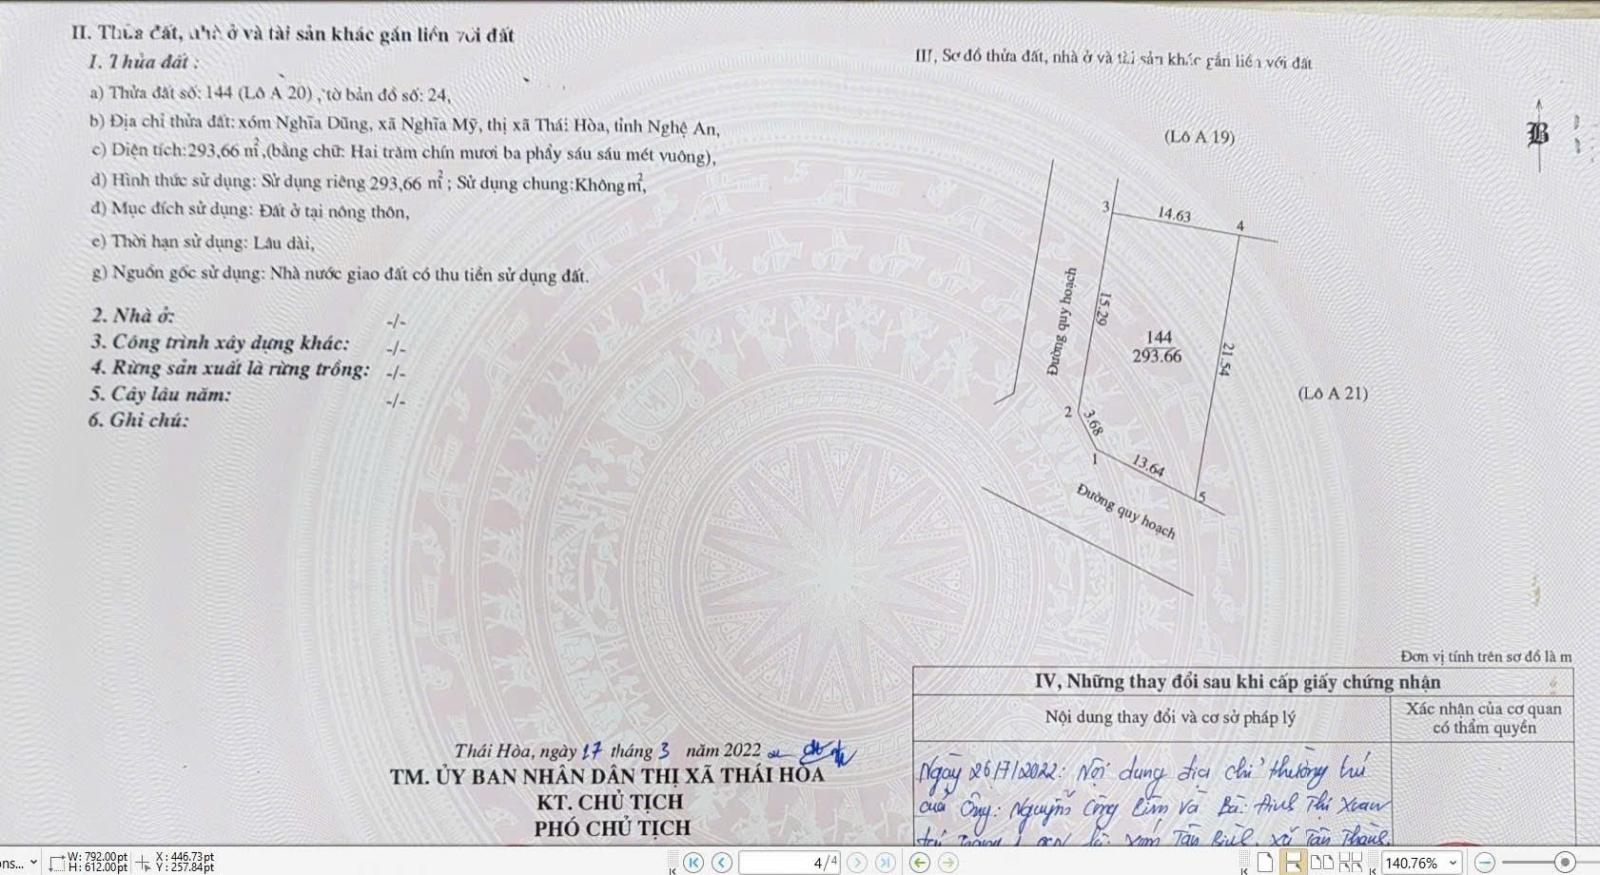 II. Thửa đất, nhà ở và tài sản khác gắn liền với đất
1. Thửa đất :
a) Thửa đất số: 144 (Lô A 20) , tờ bản đồ số: 24,
b) Địa chỉ thửa đất: xóm Nghĩa Dũng, xã Nghĩa Mỹ, thị xã Thái Hòa, tỉnh Nghệ An,
c) Diện tích:293,66 m²,(bằng chữ: Hai trăm chín mươi ba phẩy sáu sáu mét vuông),
d) Hình thức sử dụng: Sử dụng riêng 293,66 m² ; Sử dụng chung:Không m²,
đ) Mục đích sử dụng: Đất ở tại nông thôn,
e) Thời hạn sử dụng: Lâu dài,
g) Nguồn gốc sử dụng: Nhà nước giao đất có thu tiền sử dụng đất.
2. Nhà ở: -/-
3. Công trình xây dựng khác: -/-
4. Rừng sản xuất là rừng trồng: -/-
5. Cây lâu năm: -/-
6. Ghi chú:
Thái Hòa, ngày 17 tháng 3 năm 2022
TM. ỦY BAN NHÂN DÂN THỊ XÃ THÁI HÒA
KT. CHỦ TỊCH
PHÓ CHỦ TỊCH
III, Sơ đồ thửa đất, nhà ở và tài sản khác gắn liền với đất
(Lô A 19)
B
3
14.63
4
Đường quy hoạch
15.29
144
293.66
21.54
(Lô A 21)
2
3.68
1
13.64
5
Đường quy hoạch
Đơn vị tính trên sơ đồ là m
IV, Những thay đổi sau khi cấp giấy chứng nhận
Nội dung thay đổi và cơ sở pháp lý
Xác nhận của cơ quan
có thẩm quyền
Ngày 26/7/2022: Nội dung địa chỉ thường trú
của Ông: Nguyễn Công và Bà: Đinh Thị Xuan
Tân xã Tân
ns...
W: 792.00pt
H: 612.00pt
X : 446.73pt
Y : 257.84pt
4/4
140.76%